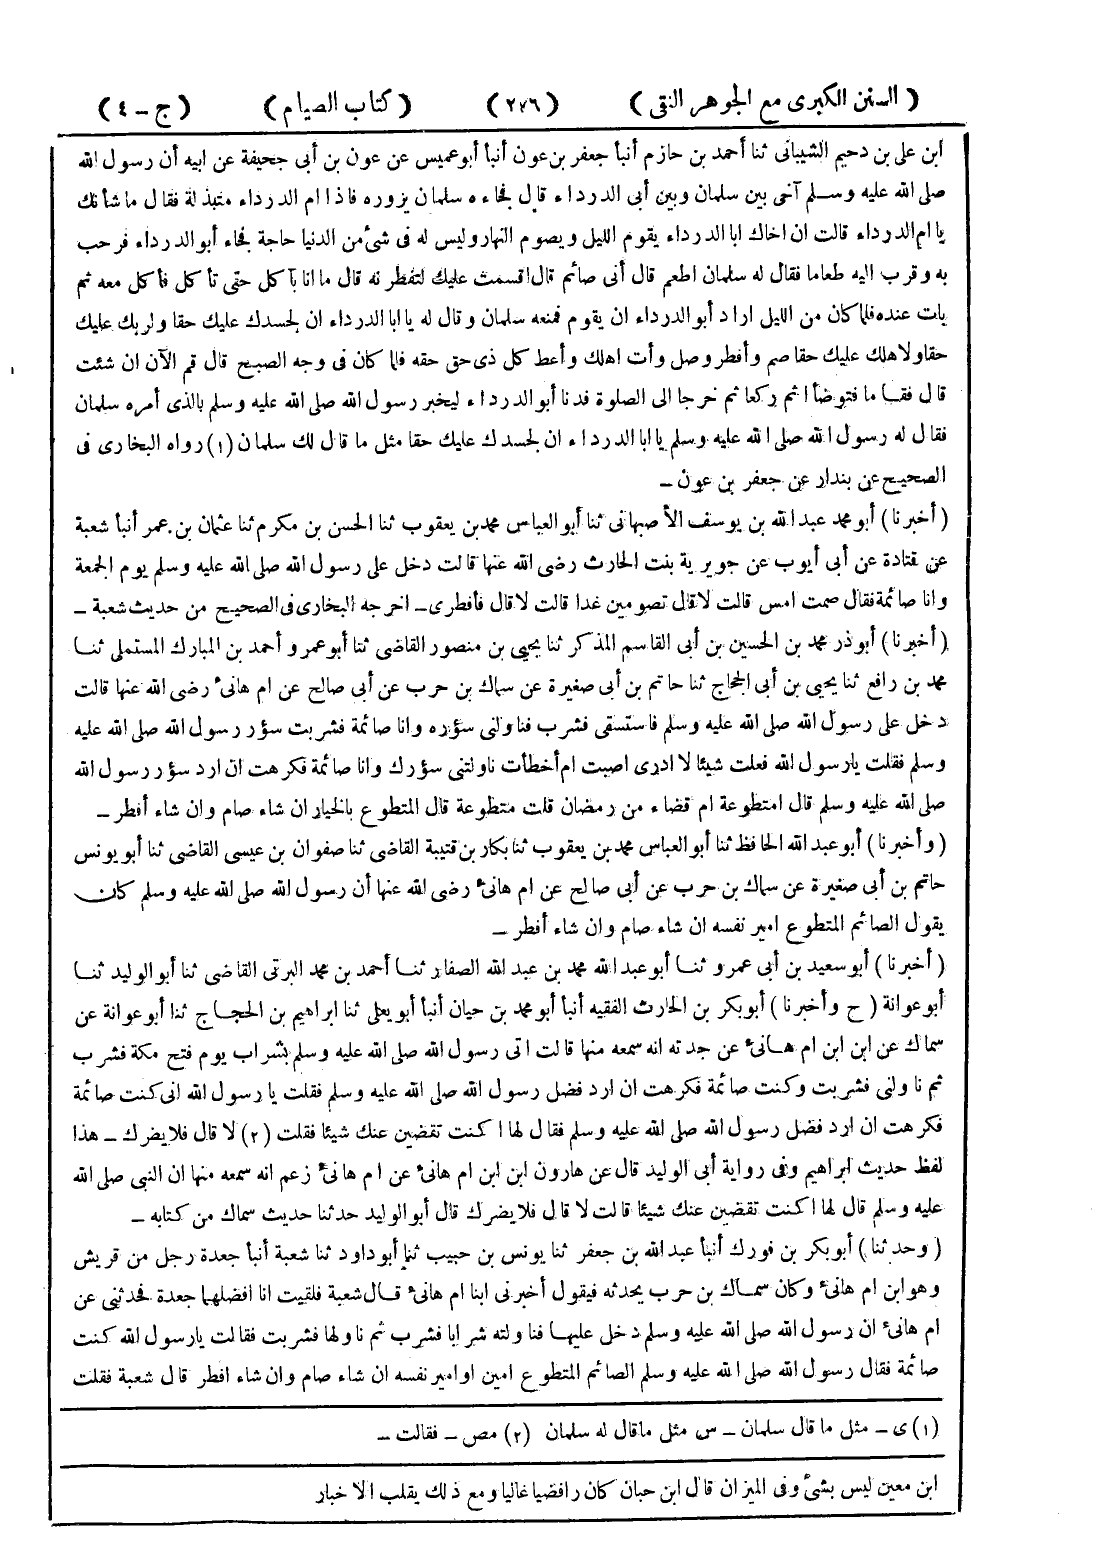 ( السنن الكبرى مع الجوهر النقى ) ( ٢٧٦ ) ( كتاب الصيام ) ( ج - ٤ )
ابن على بن دحيم الشيبانى ثنا أحمد بن حازم أنبأ جعفر بن عون أنبأ أبو عميس عن عون بن أبى جحيفة عن ابيه أن رسول الله
صلى الله عليه وسلم آخى بين سلمان وبين أبى الدرداء قال فجاءه سلمان يزوره فاذا ام الدرداء متبذلة فقال ما شأنك
يا ام الدرداء قالت ان اخاك ابا الدرداء يقوم الليل ويصوم النهار وليس له فى شئ من الدنيا حاجة فجاء أبو الدرداء فرحب
به وقرب اليه طعاما فقال له سلمان اطعم قال أنى صائم قال اقسمت عليك لتفطرنه قال ما انا بآكل حتى تأكل فأكل معه ثم
بات عنده فلما كان من الليل اراد أبو الدرداء ان يقوم فمنعه سلمان وقال له يا ابا الدرداء ان لجسدك عليك حقا ولربك عليك
حقا ولاهلك عليك حقا صم وأفطر وصل وأت اهلك وأعط كل ذى حق حقه فلما كان فى وجه الصبح قال قم الآن ان شئت
قال فقاما فتوضأا ثم ركعا ثم خرجا الى الصلوة فدنا أبو الدرداء ليخبر رسول الله صلى الله عليه وسلم بالذى أمره سلمان
فقال له رسول الله صلى الله عليه وسلم يا ابا الدرداء ان لجسدك عليك حقا مثل ما قال لك سلمان (١) رواه البخارى فى
الصحيح عن بندار عن جعفر بن عون -
( أخبرنا ) أبو محمد عبد الله بن يوسف الأصبهانى ثنا أبو العباس محمد بن يعقوب ثنا الحسن بن مكرم ثنا عثمان بن عمر أنبأ شعبة
عن قتادة عن أبى أيوب عن جويرية بنت الحارث رضى الله عنها قالت دخل على رسول الله صلى الله عليه وسلم يوم الجمعة
وانا صائمة فقال صمت امس قالت لا قال تصومين غدا قالت لا قال فأفطرى - اخرجه البخارى فى الصحيح من حديث شعبة -
( أخبرنا ) أبو ذر محمد بن الحسين بن أبى القاسم المذكر ثنا يحيى بن منصور القاضى ثنا أبو عمرو أحمد بن المبارك المستملى ثنا
محمد بن رافع ثنا يحيى بن أبى الحجاج ثنا حاتم بن أبى صغيرة عن سماك بن حرب عن أبى صالح عن ام هانئ رضى الله عنها قالت
دخل على رسول الله صلى الله عليه وسلم فاستسقى فشرب فناولنى سؤره وانا صائمة فشربت سؤر رسول الله صلى الله عليه
وسلم فقلت يا رسول الله فعلت شيئا لا ادرى اصبت ام أخطأت ناولتنى سؤرك وانا صائمة فكرهت ان ارد سؤر رسول الله
صلى الله عليه وسلم قال امتطوعة ام قضاء من رمضان قلت متطوعة قال المتطوع بالخيار ان شاء صام وان شاء أفطر -
( وأخبرنا ) أبو عبد الله الحافظ ثنا أبو العباس محمد بن يعقوب ثنا بكار بن قتيبة القاضى ثنا صفوان بن عيسى القاضى ثنا أبو يونس
حاتم بن أبى صغيرة عن سماك بن حرب عن أبى صالح عن ام هانئ رضى الله عنها أن رسول الله صلى الله عليه وسلم كان
يقول الصائم المتطوع امير نفسه ان شاء صام وان شاء أفطر -
( أخبرنا ) أبو سعيد بن أبى عمرو ثنا أبو عبد الله محمد بن عبد الله الصفار ثنا أحمد بن محمد البرتى القاضى ثنا أبو الوليد ثنا
أبو عوانة ( ح وأخبرنا ) أبو بكر بن الحارث الفقيه أنبأ أبو محمد بن حيان أنبأ أبو يعلى ثنا ابراهيم بن الحجاج ثنا أبو عوانة عن
سماك عن ابن ابن ام هانئ عن جدته انه سمعه منها قالت اتى رسول الله صلى الله عليه وسلم بشراب يوم فتح مكة فشرب
ثم ناولنى فشربت وكنت صائمة فكرهت ان ارد فضل رسول الله صلى الله عليه وسلم فقلت يا رسول الله انى كنت صائمة
فكرهت ان ارد فضل رسول الله صلى الله عليه وسلم فقال لها اكنت تقضين عنك شيئا فقلت (٢) لا قال فلا يضرك - هذا
لفظ حديث ابراهيم وفى رواية أبى الوليد قال عن هارون ابن ابن ام هانئ عن ام هانئ زعم انه سمعه منها ان النبى صلى الله
عليه وسلم قال لها اكنت تقضين عنك شيئا قالت لا قال فلا يضرك قال أبو الوليد حدثنا حديث سماك من كتابه -
( وحدثنا ) أبو بكر بن فورك أنبأ عبد الله بن جعفر ثنا يونس بن حبيب ثنا أبو داود ثنا شعبة أنبأ جعدة رجل من قريش
وهو ابن ام هانئ وكان سماك بن حرب يحدثه فيقول أخبرنى ابنا ام هانئ قال شعبة فلقيت انا افضلهما جعدة فحدثنى عن
ام هانئ ان رسول الله صلى الله عليه وسلم دخل عليها فناولته شرابا فشرب ثم ناولها فشربت فقالت يا رسول الله كنت
صائمة فقال رسول الله صلى الله عليه وسلم الصائم المتطوع امين او امير نفسه ان شاء صام وان شاء افطر قال شعبة فقلت
(١) ى - مثل ما قال سلمان - س مثل ما قال له سلمان (٢) مص - فقالت -
ابن معين ليس بشئ وفى الميزان قال ابن حبان كان رافضيا غاليا ومع ذلك يقلب الاخبار